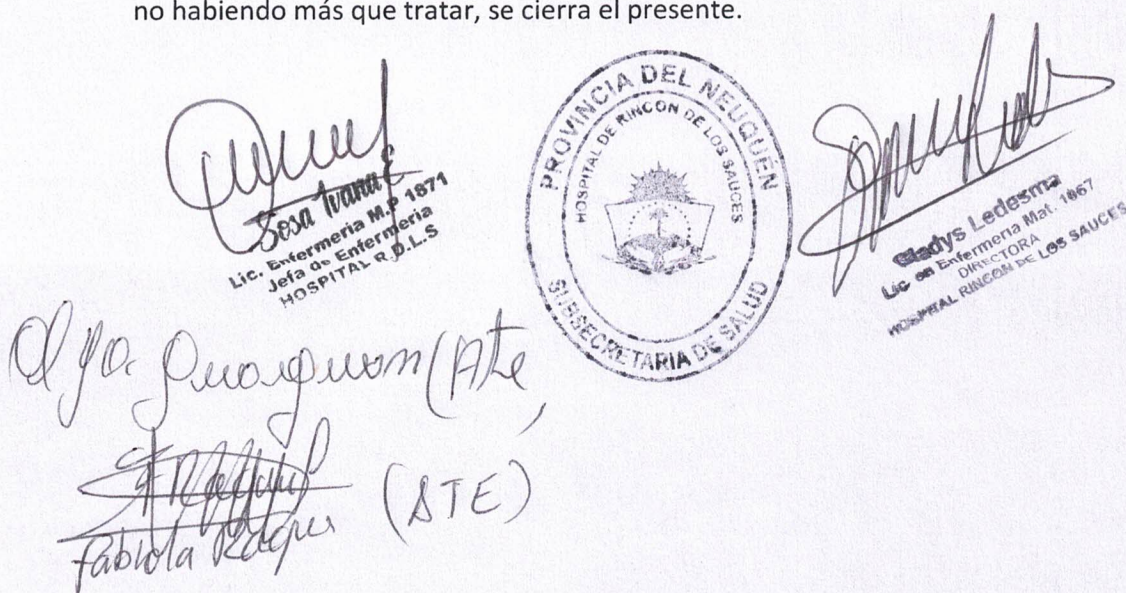 no habiendo más que tratar, se cierra el presente.
Sosa Ivana E
Lic. Enfermeria M.P 1871
Jefa de Enfermeria
HOSPITAL R.D.L.S
PROVINCIA DEL NEUQUÉN
HOSPITAL DE RINCON DE LOS SAUCES
SUBSECRETARIA DE SALUD
Gladys Ledesma
Lic en Enfermeria Mat. 1067
DIRECTORA
HOSPITAL RINCON DE LOS SAUCES
Olga (Ate
(ATE)
Fabiola